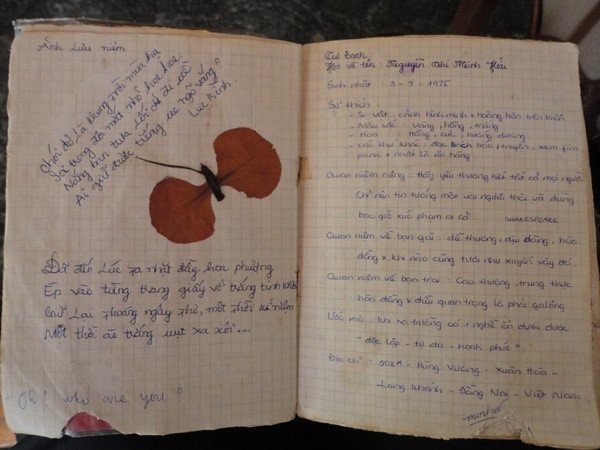 Ảnh Lưu niệm
khói đỏ là phượng trời mùa hạ
Sài trong đỏ mắt nhỏ hoe hoe
Nắng ban trưa rồi đó đi về
Ai giữ điều tiếng ve ngỡ vàng?
Lục Bình
Đã đến Lúc ra nhặt đầy hoa phượng
Ép vào từng trang giấy vở trắng tinh khôi
Giữ Lại khoảng ngây thơ, một thời kỉ niệm
Một thời áo trắng vụt xa xôi...
Oh! who are you?
Tự bạch:
Họ và tên: Nguyễn Thị Minh Hải
Sinh nhật 3 - 7 - 1975
Sở thích:
- Si vất cảnh bình minh & hoàng hôn trên biển
- Màu sắc: vàng, hồng, trắng
- Hoa: hồng, cúc, hướng dương.
- các thú khác: đọc sách báo & truyện, xem fim
panic & nhất là ăn hàng.
Quan niệm riêng: Hãy yêu thương hết tất cả mọi người
Chỉ nên tin tưởng một vài người thôi và đừng
bao giờ xúc phạm ai cả. SHAKESPEARE
Quan niệm về bạn gái: dễ thương, dịu dàng, hòa
đồng & khi nào cũng tươi như xuyến vậy đó.
Quan niệm về bạn trai: Cao thượng, trung thực
hòa đồng & điều quan trọng là phải galăng
Ước mơ: khi ra trường có 1 nghề ổn định được
"độc lập - tự do - hạnh phúc".
Địa chỉ: 908M - Hùng Vương - Xuân Hòa -
Long Khánh - Đồng Nai - Việt Nam
minhai